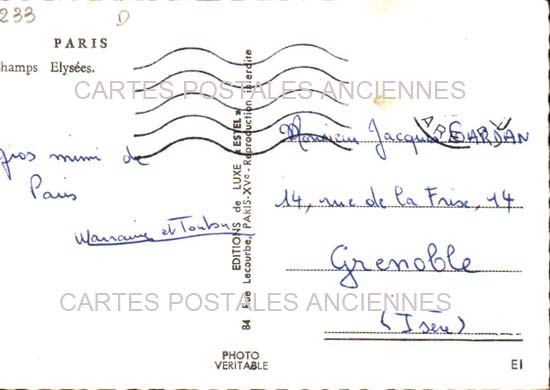 233
D
PARIS
Champs Elysées.
CARTES POSTALES ANCIENNES
gros mimi de
Paris
Marraine et Tonton
EDITIONS de LUXE "ESTEL"
84 Rue Lecourbe, PARIS-XVe - Reproduction interdite
Monsieur Jacques DARDAN
14, rue de la Frise, 14
Grenoble
(Isère)
CARTES POSTALES ANCIENNES
PHOTO
VERITABLE
EI